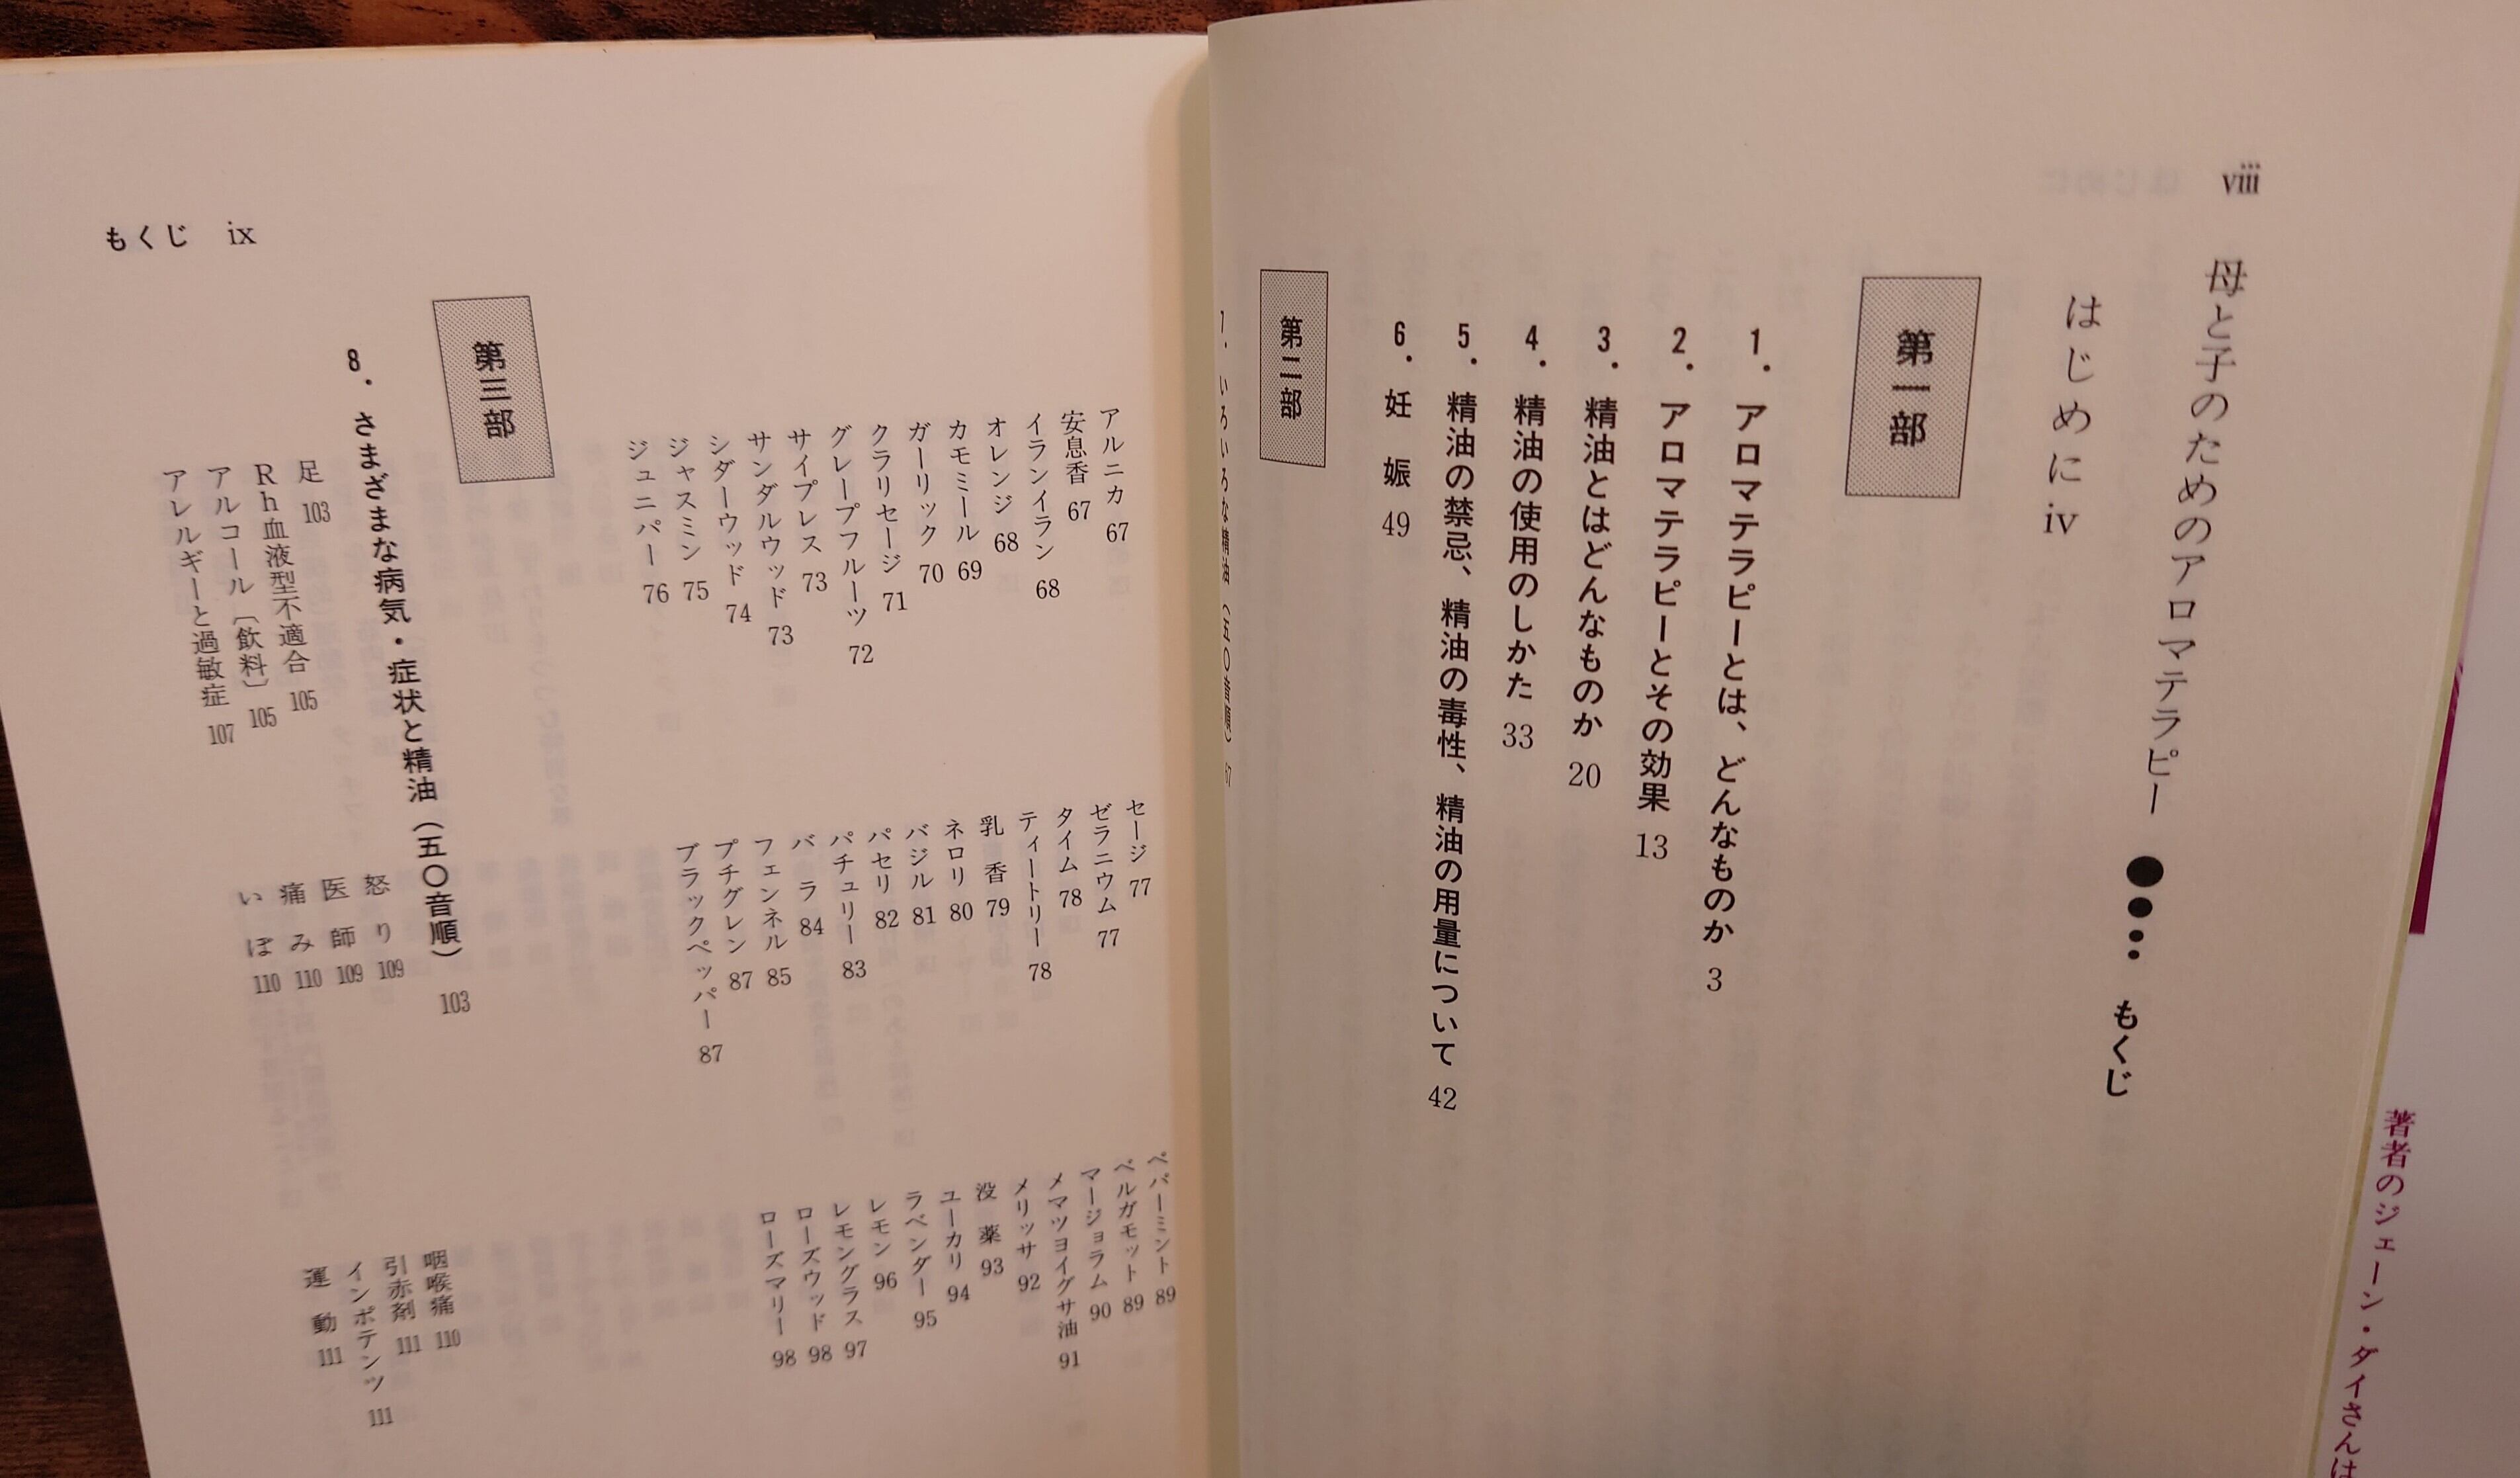 viii
母と子のためのアロマテラピー もくじ
はじめに iv
第一部
1. アロマテラピーとは、どんなものか 3
2. アロマテラピーとその効果 13
3. 精油とはどんなものか 20
4. 精油の使用のしかた 33
5. 精油の禁忌、精油の毒性、精油の用量について 42
6. 妊娠 49
第二部
7. いろいろな精油(五〇音順) 67
アルニカ 67
安息香 67
イランイラン 68
オレンジ 68
カモミール 69
ガーリック 70
クラリセージ 71
グレープフルーツ 72
サイプレス 73
サンダルウッド 73
シダーウッド 74
ジャスミン 75
ジュニパー 76
セージ 77
ゼラニウム 77
タイム 78
ティートリー 78
乳香 79
ネロリ 80
バジル 81
パセリ 82
パチュリー 83
バラ 84
フェンネル 85
プチグレン 87
ブラックペッパー 87
ペパーミント 89
ベルガモット 89
マージョラム 90
メマツヨイグサ油 91
メリッサ 92
没薬 93
ユーカリ 94
ラベンダー 95
レモン 96
レモングラス 97
ローズウッド 98
ローズマリー 98
第三部
8. さまざまな病気・症状と精油(五〇音順) 103
足 103
Rh血液型不適合 105
アルコール〔飲料〕 105
アレルギーと過敏症 107
怒り 109
医師 109
痛み 110
いぼ 110
咽喉痛 110
引赤剤 111
インポテンツ 111
運動 111
もくじ ix
著者のジェーン・ダイさんは